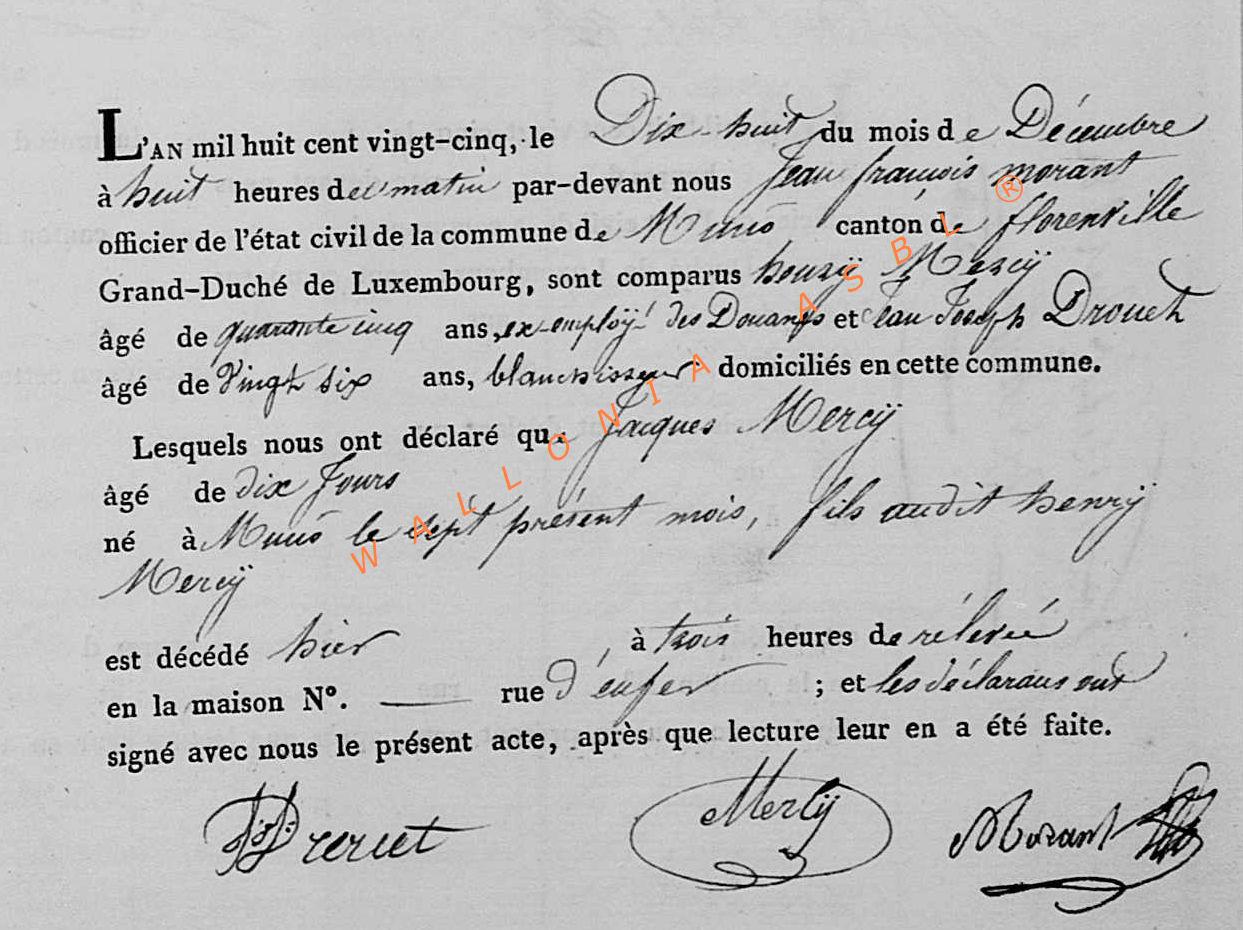 L'AN mil huit cent vingt-cinq, le Dix huit du mois de Décembre
à huit heures du matin par-devant nous Jean françois morant
officier de l'état civil de la commune de Muno canton de florenville
Grand-Duché de Luxembourg, sont comparus henrÿ Mercÿ
âgé de quarante cinq ans, ex-employé des Douanes et Jean Joseph Drouet
âgé de Vingt six ans, blanchisseur domiciliés en cette commune.
Lesquels nous ont déclaré que Jacques Mercÿ
âgé de dix Jours
né à Muno le sept présent mois, fils audit henrÿ
Mercÿ
est décédé hier, à trois heures de rélevée
en la maison N°. — rue d'enfer ; et les déclarans ont
signé avec nous le présent acte, après que lecture leur en a été faite.
Drouet Mercÿ Morant
WALLONIA ASBL ®